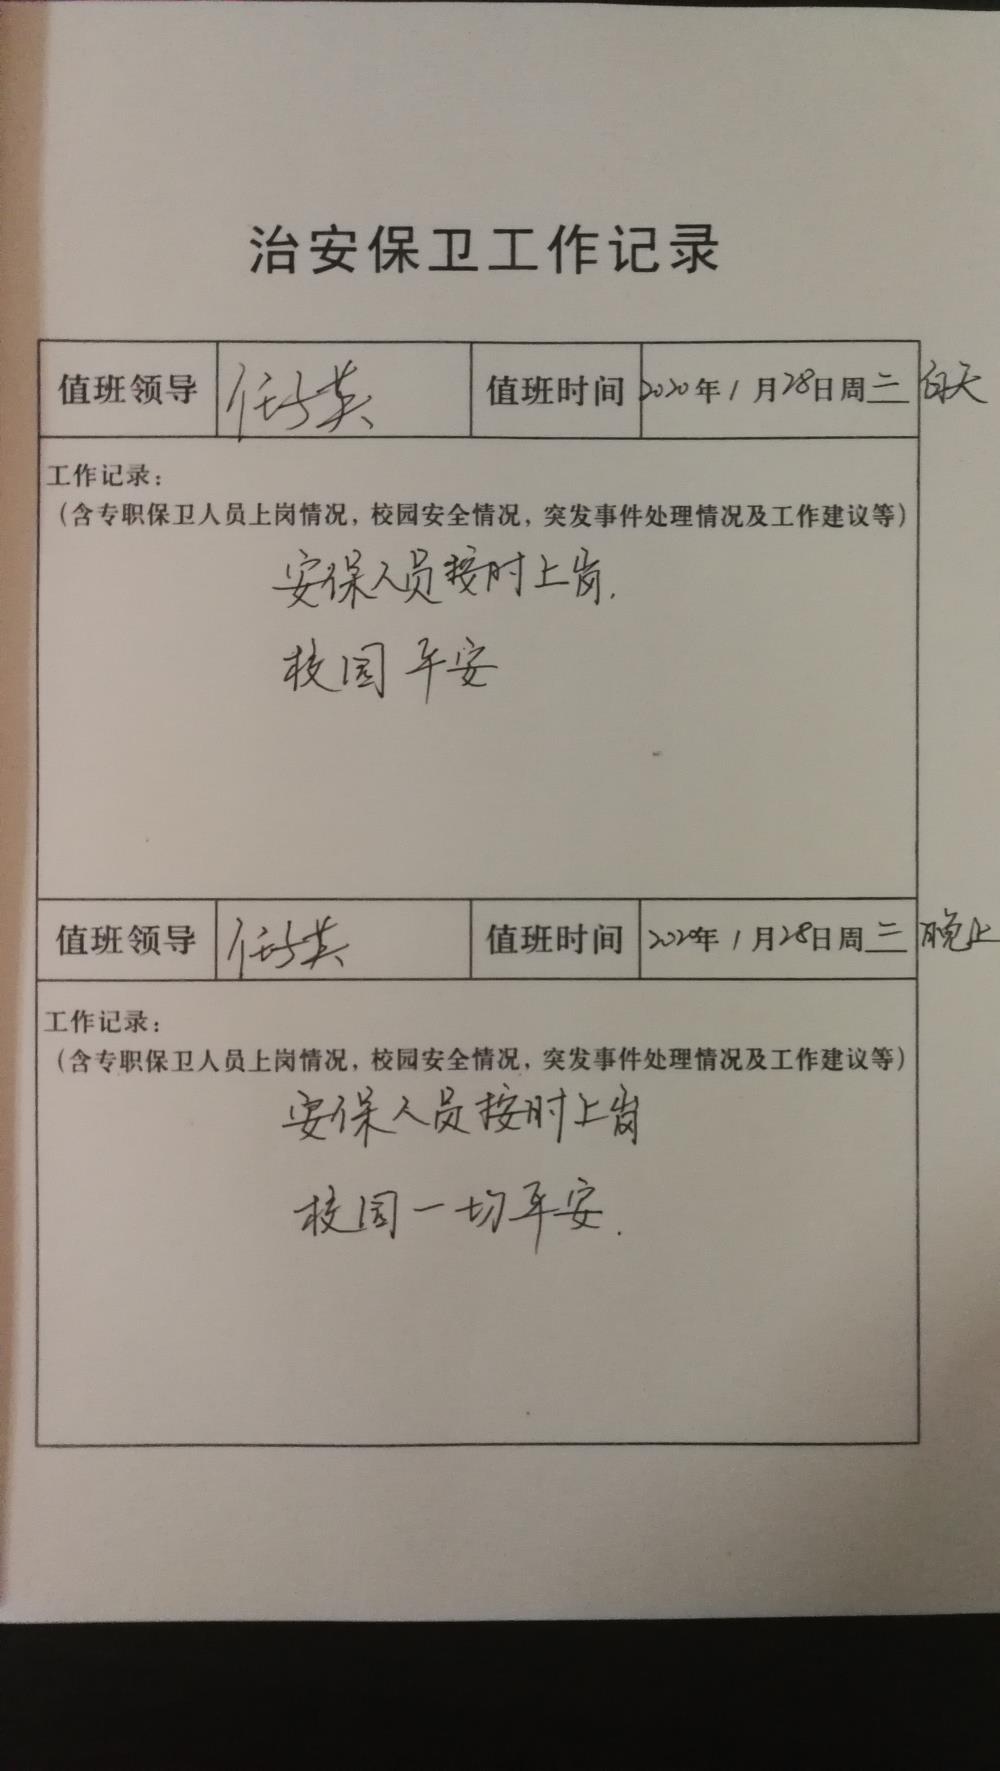 治安保卫工作记录
值班领导 任英 值班时间 2020年1月28日周二 白天
工作记录:
(含专职保卫人员上岗情况,校园安全情况,突发事件处理情况及工作建议等)
安保人员按时上岗.
校园平安
值班领导 值班时间 2020年1月28日周二 晚上
工作记录:
(含专职保卫人员上岗情况,校园安全情况,突发事件处理情况及工作建议等)
安保人员按时上岗
校园一切平安.